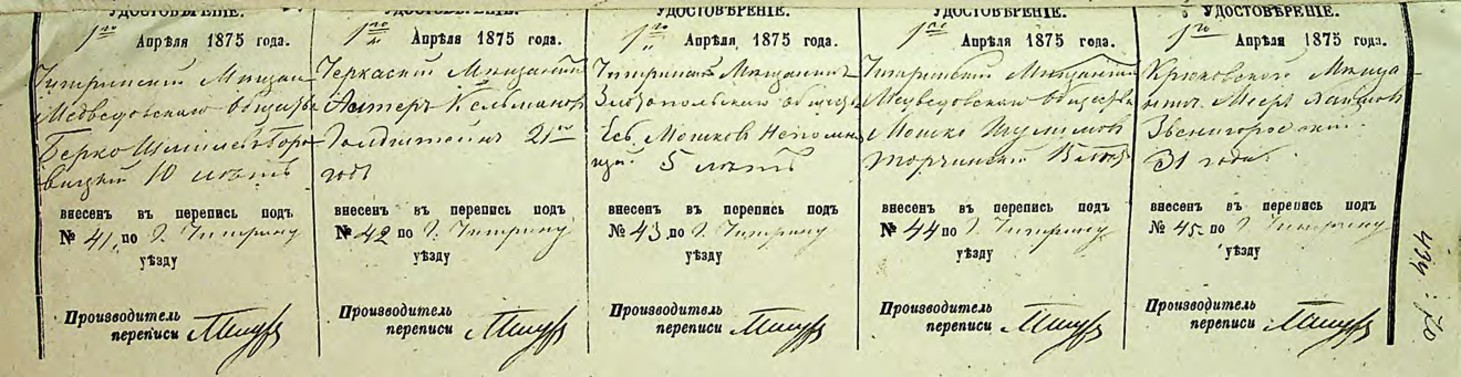 УДОСТОВѢРЕНІЕ.
1го Апрѣля 1875 года.
Чигиринскій Мѣщан
Медведовскаго Общества
Берко Шмилев Боро
вицкій 10 лѣтъ
внесенъ въ перепись подъ
№ 41 по г. Чигирину
уѣзду
Производитель
переписи
УДОСТОВѢРЕНІЕ.
1го Апрѣля 1875 года.
Черкаскій Мѣщанинъ
Кельманов
Голдштейнъ 21го
года
внесенъ въ перепись подъ
№ 42 по г. Чигирину
уѣзду
Производитель
переписи
УДОСТОВѢРЕНІЕ.
1го Апрѣля 1875 года.
Чигиринскій Мѣщанинъ
Златопольскаго общества
Мошков Непомня
щій 5 лѣтъ
внесенъ въ перепись подъ
№ 43 по г. Чигирину
уѣзду
Производитель
переписи
УДОСТОВѢРЕНІЕ.
1го Апрѣля 1875 года.
Чигиринскій Мѣщанинъ
Медведовскаго Общества
Мошко Шулимов
Торчинскій 15 лѣтъ
внесенъ въ перепись подъ
№ 44 по г. Чигирину
уѣзду
Производитель
переписи
УДОСТОВѢРЕНІЕ.
1го Апрѣля 1875 года.
Крюковскаго Мѣща
Меер Хаимов
Звенигородский
31 года.
внесенъ въ перепись подъ
№ 45 по г. Чигирину
уѣзду
Производитель
переписи